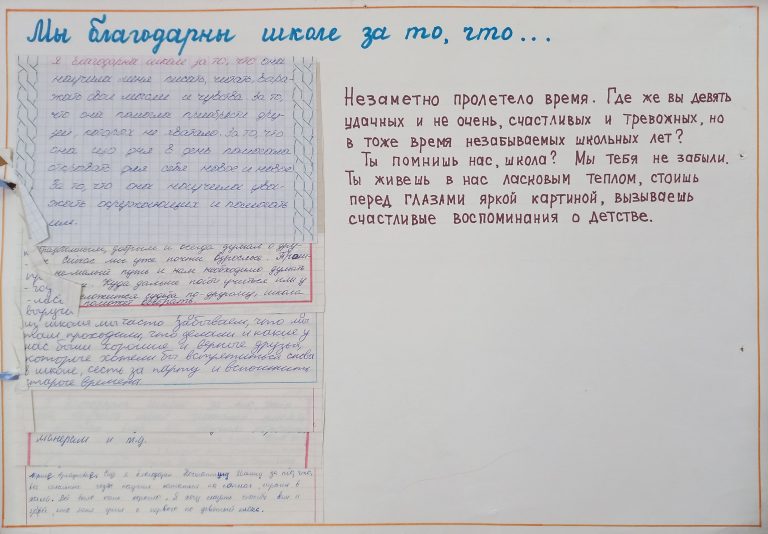 Мы благодарны школе за то, что...
Я благодарна школе за то, что она
научила меня писать, читать, выра-
жать свои мысли и чувства. За то,
что она помогла приобрести дру-
зей, которых не хватало. За то, что
она изо дня в день помогала
открывать для себя новое и новое
За то, что она научила ува-
жать окружающих и помогать
им.
добрыми и всегда думал о дру-
Сейчас мы уже почти взрослые.
немалый путь и нам необходимо думать
Куда дальше пойти учиться или у
сложится судьба по-другому, школа
поможет выбрать.
из школы мы часто забываем, что мы
там проходили, что делали и какие у
нас были хорошие и верные друзья,
которые хотели бы встретиться снова
в школе, сесть за парту и вспомнить
старые времена.
манерам и т.д.
Незаметно пролетело время. Где же вы девять
удачных и не очень, счастливых и тревожных, но
в тоже время незабываемых школьных лет?
Ты помнишь нас, школа? Мы тебя не забыли.
Ты живешь в нас ласковым теплом, стоишь
перед глазами яркой картиной, вызываешь
счастливые воспоминания о детстве.